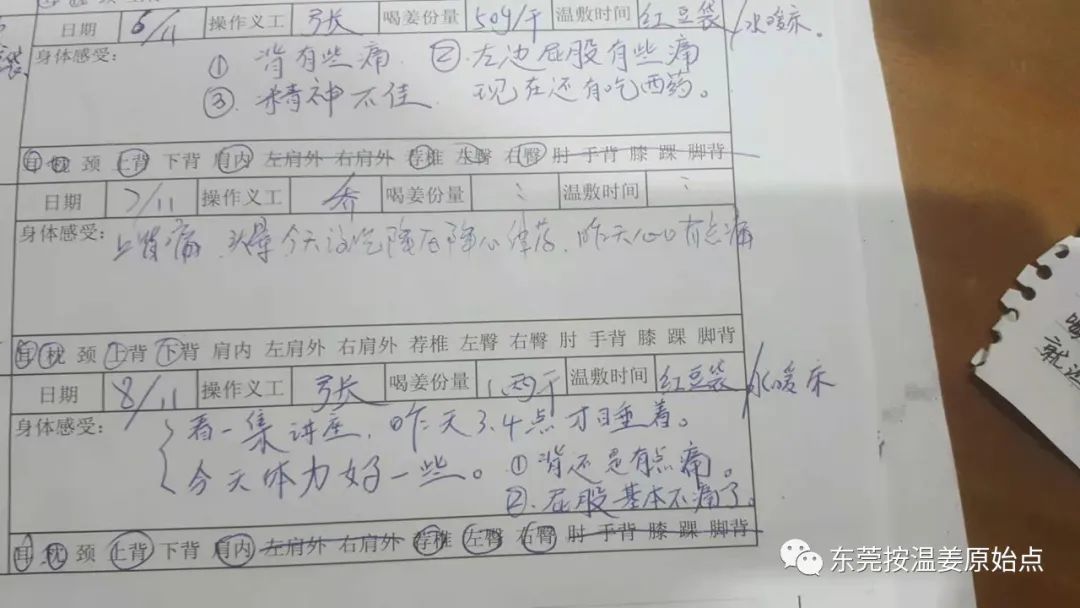 日期 6/11 操作义工 张 喝姜份量 50g/干 温敷时间 红豆袋/水暖床。
身体感受:
① 背有些痛. ②左边屁股有些痛
③.精神不佳. 现在还有吃西药。
耳 枕 颈 上背 下背 肩内 左肩外 右肩外 荐椎 左臀 右臀 肘 手背 膝 踝 脚背
日期 7/11 操作义工 乔 喝姜份量 温敷时间
身体感受: 上背痛,头晕 今天没吃降压降心律药,昨天心口有点痛
耳 枕 颈 上背 下背 肩内 左肩外 右肩外 荐椎 左臀 右臀 肘 手背 膝 踝 脚背
日期 8/11 操作义工 张 喝姜份量 1两干 温敷时间 红豆袋/水暖床
身体感受:
看一集讲座,昨天3.4点才睡着。
今天体力好一些。①背还是有点痛。
②.屁股基本不痛了。
耳 枕 颈 上背 下背 肩内 左肩外 右肩外 荐椎 左臀 右臀 肘 手背 膝 踝 脚背
就
东莞按温姜原始点